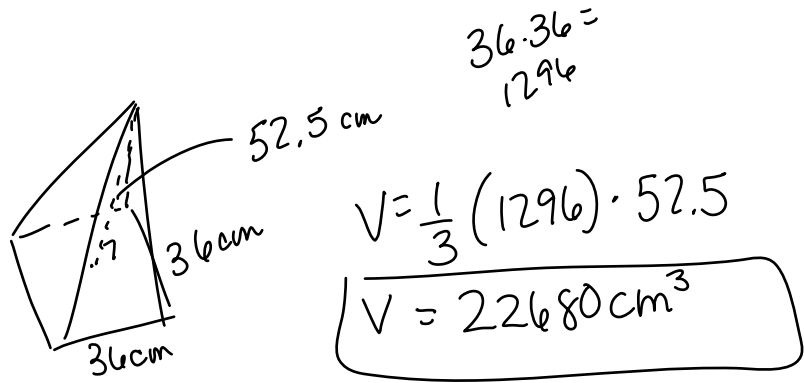 36·36=
1296
52.5 cm
36cm
36cm
V=1/3 (1296)·52.5
V = 22680cm³